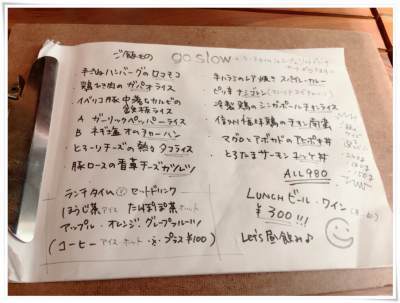 ご飯もの
go slow
手ごねハンバーグのロコモコ
鶏むね肉のガパオライス
・イベリコ豚中落ちカルビの
鉄板ライス
A ガーリックペッパーライス
B ネギ塩のチャーハン
・とろ〜りチーズの熱々タコライス
豚ロースの香草チーズカツレツ
牛ハラミのレア焼き スパイシーカレー
ピリ辛ナシゴレン
冷製鶏のシンガポールチキンライス
信州福味鶏のチキン南蛮
マグロとアボカドのアヒポキ丼
・とろたまサーモンユッケ丼
ALL 980
ランチタイム セットドリンク
ほうじ茶 アイス たんぽぽ茶 ホット
アップル・オレンジ・グレープフルーツ
(コーヒー アイス・ホット プラス¥100)
LUNCH ビール・ワイン
¥300!!!
Let's昼飲み♪